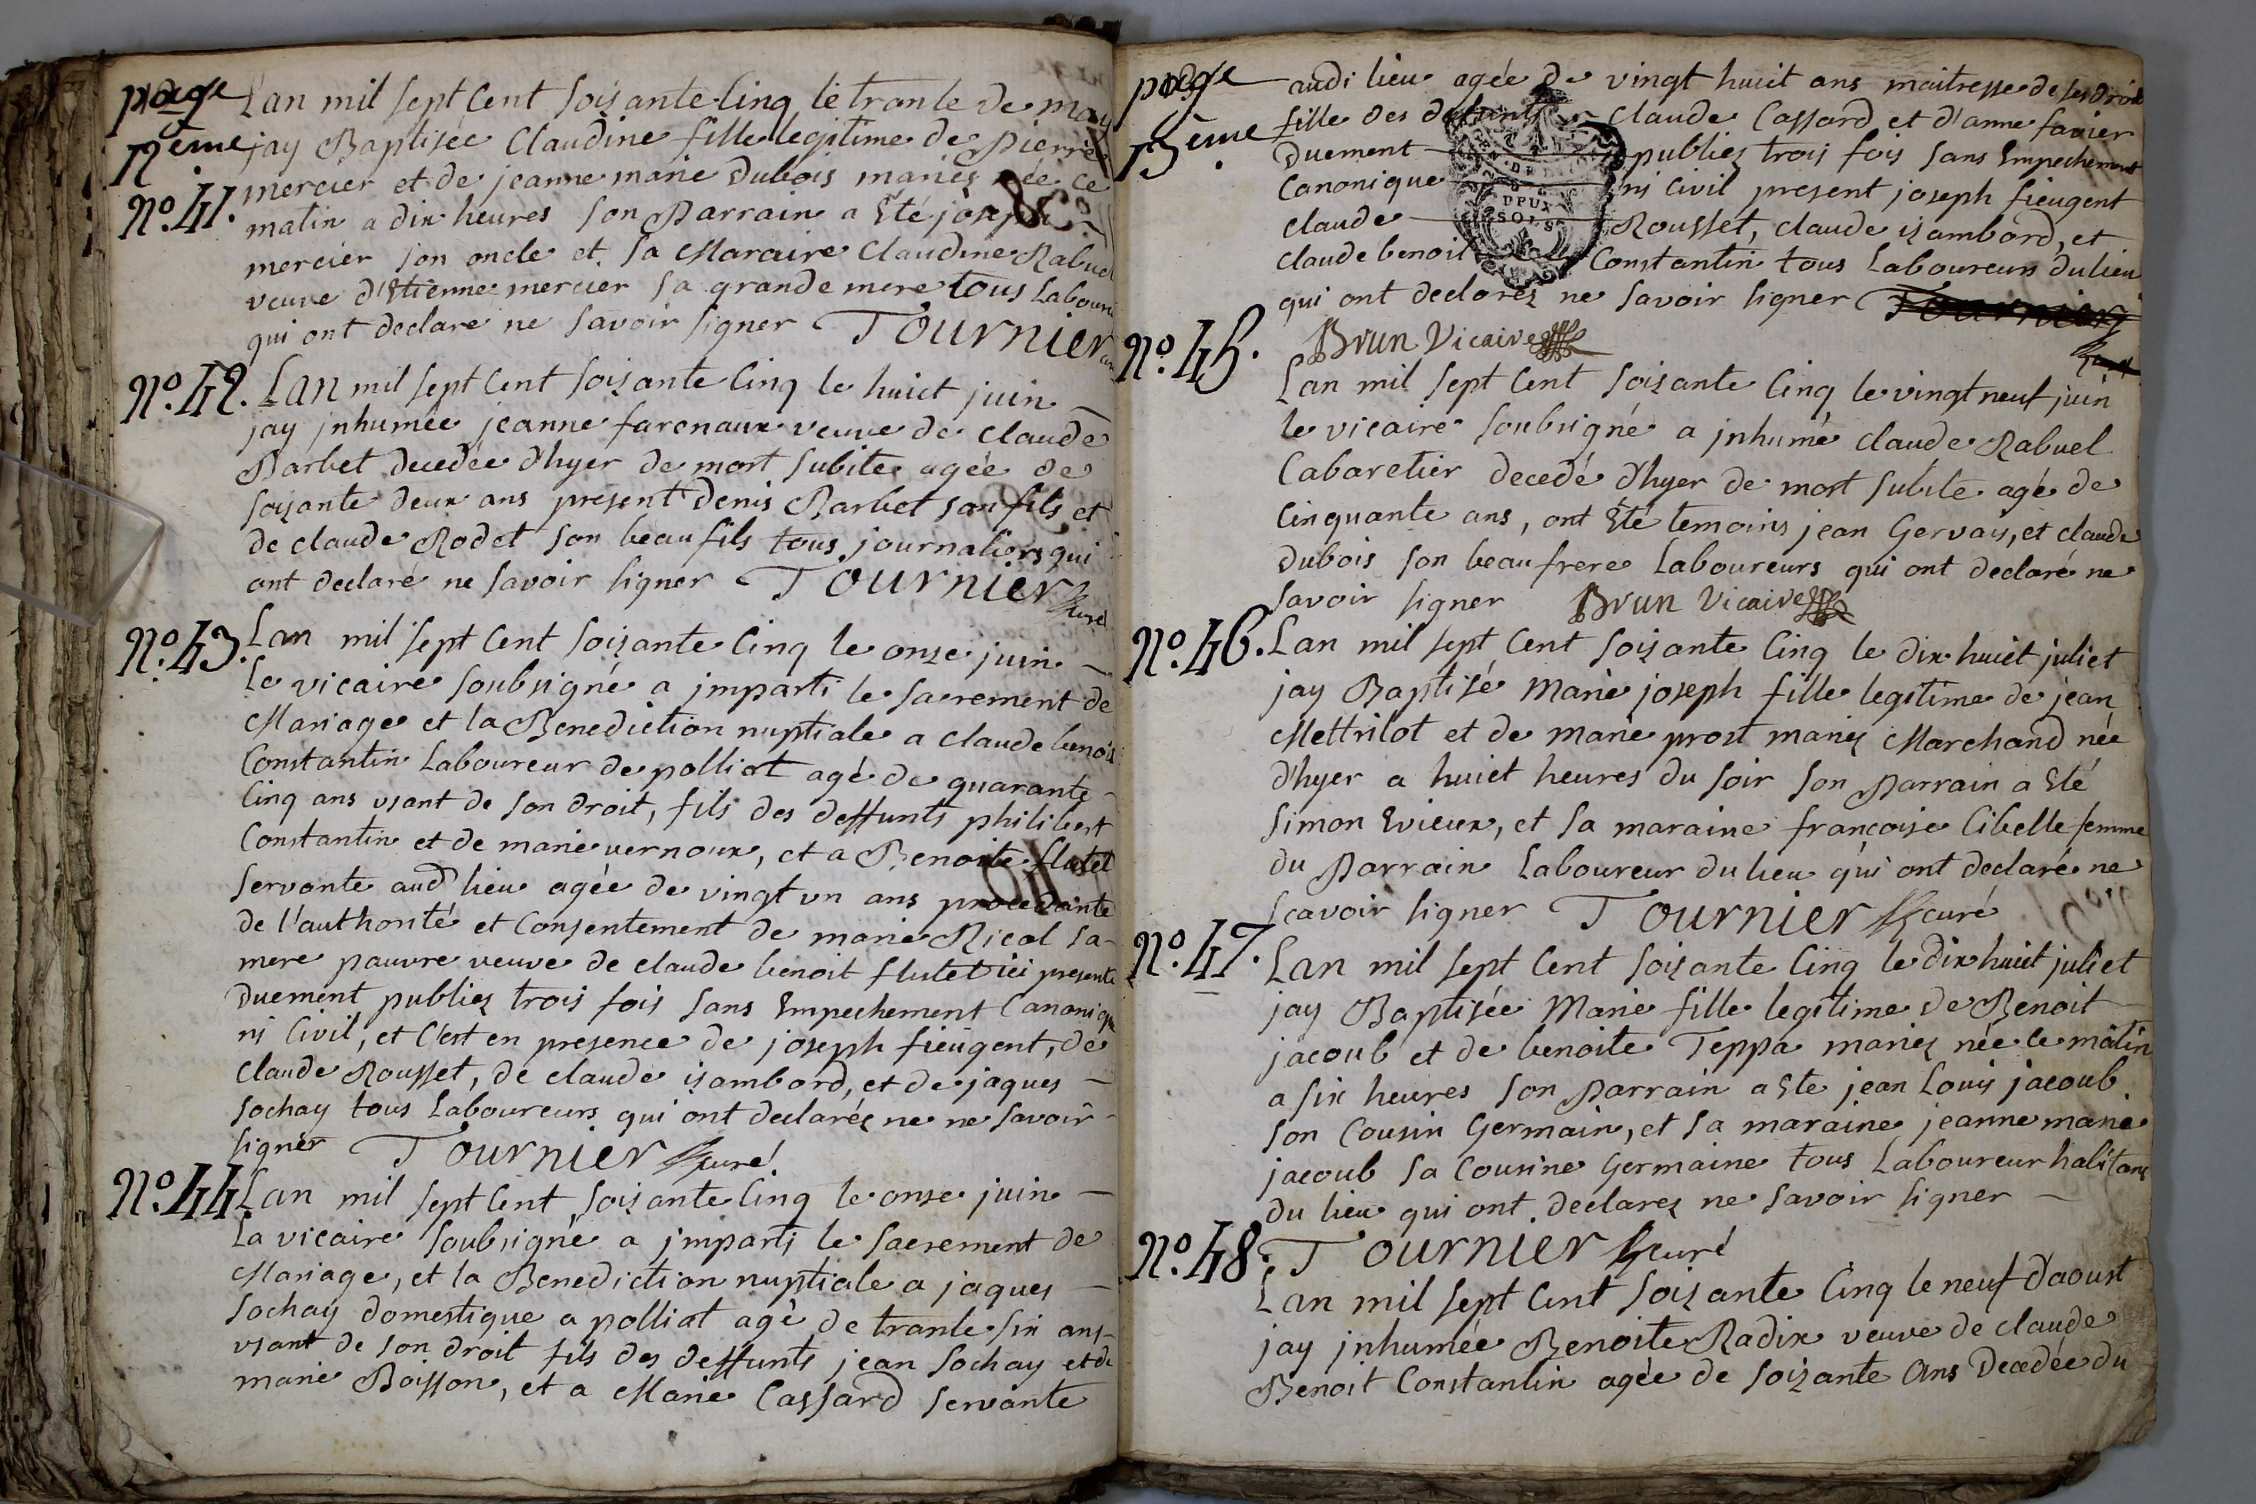 page
12eme
Lan mil sept Cent soisante Cinq le trante de may
jay Baptisée Claudine fille legitime de Pierre
No. 41.
mercier et de jeanne marie Dubois mariez née ce
matin a dix heures son Parrain a Eté joseph
mercier son oncle et sa Maraire Claudine Rabuel
veuve d'Etienne mercier sa grande mere tous Labour
qui ont declare ne savoir signer Tournier
No. 42.
Lan mil sept Cent soisante Cinq le huict juin
jay jnhumée jeanne farenaux veuve de Claude
Barbet decedée d'hyer de mort subite agée de
soisante deux ans present Denis Barbet son fils et
de claude Rodet son beau fils tous journaliers qui
ont declaré ne savoir signer Tournier curé
No. 43.
Lan mil sept Cent soisante Cinq le onze juin
Le vicaire soubsigné a jmparti le sacrement de
Mariage et la Benediction nuptiale a Claude benoit
Constantin Laboureur de polliat agé de quarante
Cinq ans usant de son droit, fils des deffunts philibert
Constantin et de marie vernoux, et a Benoite flutet
servante aud lieu agée de vingt un ans procedante
de l'authorité et Consentement de marie Nicol sa
mere pauvre veuve de claude benoit flutet ici presente
Duement publiez trois fois sans Empechement Canonique
ni Civil, et C'est en presence de joseph fieugent, de
claude Rousset, de claude isambord, et de jaques
sochay tous Laboureurs qui ont declarez ne ne savoir
signer Tournier curé
No. 44.
Lan mil sept Cent soisante Cinq le onze juin
La vicaire soubsigné a jmparti le sacrement de
Mariage, et la Benediction nuptiale a jaques
sochay domestique a polliat agé de trante six ans
usant de son droit fils des deffunts jean sochay et de
marie Boisson, et a Marie Cassard servante
page
13eme
audi lieu agée de vingt huit ans maitresse de ses droits
fille des defunts Claude Cassard et d'anne favier
Duement publiez trois fois sans Empechement
Canonique ni Civil present joseph fieugent
claude Rousset, claude isambord, et
claude benoit Constantin tous Laboureurs du lieu
DEUX
SOLS
qui ont declorez ne savoir signer Tournier
Brun Vicaire
No. 45.
Lan mil sept Cent soisante Cinq le vingt neuf juin
le vicaire soubsigné a jnhumé claude Rabuel
Cabaretier decedé d'hyer de mort subite agé de
Cinquante ans, ont Eté temoins jean Gervais, et claude
Dubois son beau frere Laboureurs qui ont declaré ne
savoir signer Brun Vicaire
No. 46.
Lan mil sept Cent soisante Cinq le dix huiet juliet
jay Baptisé Marie joseph fille legitime de jean
Mettrilot et de marie prost mariez Marchand née
d'hyer a huiet heures du soir son Parrain a Eté
Simon Evieux, et sa maraine francoise Cibelle femme
du Parrain Laboureur du lieu qui ont declaré ne
scavoir signer Tournier curé
No. 47.
Lan mil sept Cent soisante Cinq le dix huiet juliet
jay Baptisée Marie fille legitime de Benoit
jacoub et de benoite Teppa mariez née ce matin
a six heures son Parrain a Ete jean Louis jacoub
son Cousin Germain, et sa maraine jeanne marie
jacoub sa Cousine Germaine tous Laboureur habitans
du lieu qui ont declarez ne savoir signer
Tournier curé
No. 48.
Lan mil sept Cent soisante Cinq le neuf d'aoust
jay jnhumée Benoite Radix veuve de claude
Benoit Constantin agée de soisante ans Decedée du